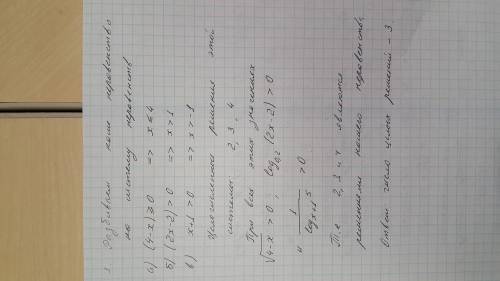 3. Разбиваем наше неравенство
на систему неравенств
а) (4-x) ⩾ 0 => x ⩽ 4
б) (2x-2) > 0 => x > 1
в) x+1 > 0 => x > -1
Целочисленные решения этой
системы 2, 3, 4
При всех этих значениях
√4-x > 0, log₀,₂ (2x-2) > 0
и 1/log x+1 5 > 0
Т.е 2, 3 и 4 являются
решениями нашего неравенства,
Ответ: число целых решений - 3.